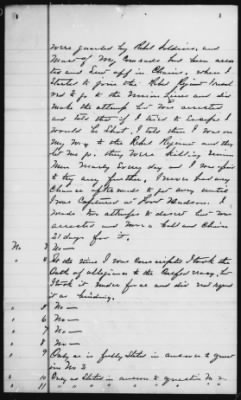 were guarded by Rebel Soldiers, and
most of my Comrads had been arres
ted and Sent off in Chains, when I
Started to join the Rebel Regiment I tried
to go to the Union Lines and did
make the attempt but was arrested
and told that if I tried to Escape I
would be Shot, I told them I was on
my way to the Rebel Regiment and they
let me go. they were killing Union
Men nearly Every day and I was afraid
to try any further, I never had any
Chance afterwards to get away until
I was Captured at Port Hudson. I
made two attempts to desert but was
arrested and wore a ball and Chain
21 days for it.
No 3 No—
" 4 At the time I was Conscripted I took the
Oath of allegiance to the Confederacy, but
I took it under force and did not regard
it as binding.
" 5 No—
" 6 No—
" 7 No—
" 8 No—
" 9 Only as is fully Stated in answer to quest
ion No 2
" 10 Only as Stated in answer to question No 2
" 11